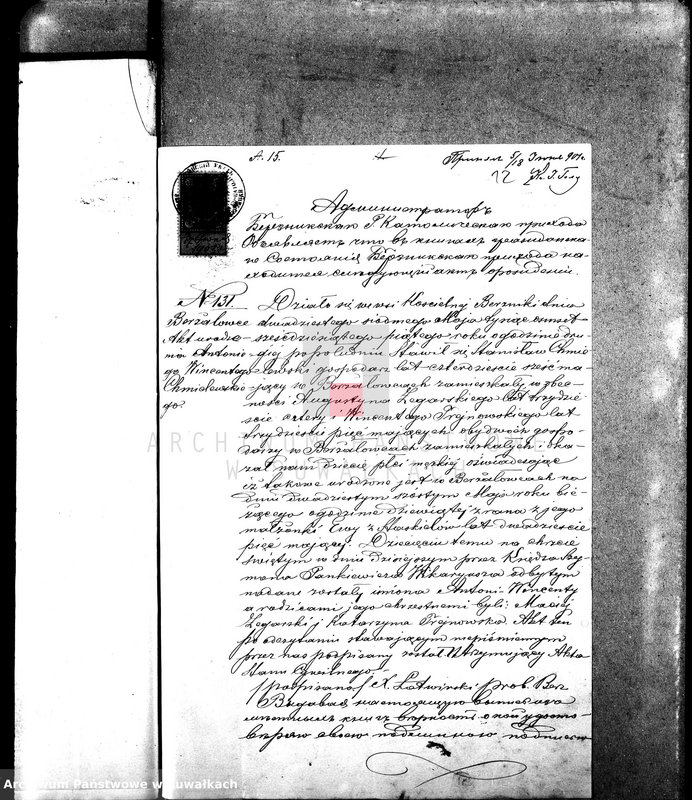 A. 15.
Администраторъ
Бержникскаго Р. Католическаго прихода
Объявляетъ что въ книгахъ гражданска-
го Состоянія Бержникскаго прихода на-
ходится слѣдующій актъ рожденія.
№ 131.
Borzałowce
Akt urodze-
nia Antonie-
go Wincentego
Chmielewskie-
go.
Działo się we wsi Kościelnej Berżniki dnia
dwudziestego siódmego Maja tysiąc ośmset-
sześćdziesiątego piątego roku o godzinie dru-
giej po południu Stawił się Stanisław Chmie-
lewski gospodarz lat czterdzieście sześć ma-
jący w Borzałowcach zamieszkały w obec-
ności Augustyna Zegarskiego lat trzydzie-
ście cztery i Wincentego Trejnowskiego lat
trzydzieści pięć mających obydwóch gospo-
darzy w Borzałowcach zamieszkałych i oka-
zał nam dziecię płci męzkiej oświadczając
iż takowe urodzone jest w Borzałowcach na
dniu dwudziestym szóstym Maja roku bie-
żącego o godzinie dziewiątej z rana z jego
małżonki Ewy z lat dwadzieścia
pięć mającej. Dziecięciu temu na chrzcie
świętym w dniu dzisiejszym przez Księdza Szy-
mona Pankiewicza Wikaryusza odbytym
nadane zostały imiona Antoni-Wincenty
a rodzicami jego chrzestnemi byli: Maciej
Zegarski i Katarzyna Trejnowska. Akt ten
po odczytaniu stawającym niepiśmiennym
przez nas podpisany został Utrzymujący Akta
Stanu Cywilnego.
/podpisano/ X. Łatwiński prob. Berż
Выдавая настоящую выпись изъ
книгъ вѣрность оной удосто-
вѣряю своею подписью
Archiwum Państwowe w Suwałkach
ARCHIWUM PAŃSTWOWE
W SUWAŁKACH